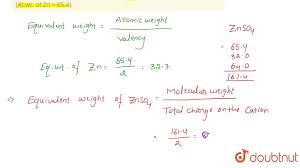 (At.wt. of Zn = 65.4)
Equivalent weight = Atomic weight
Valency
Eq. wt. of Zn = 65.4
2
= 32.7
ZnSO4
65.4
32.0
64.0
161.4
⇒ Equivalent weight of ZnSO4 = Molecular weight
Total charge on the Cation
= 161.4
2
=
doubtnut